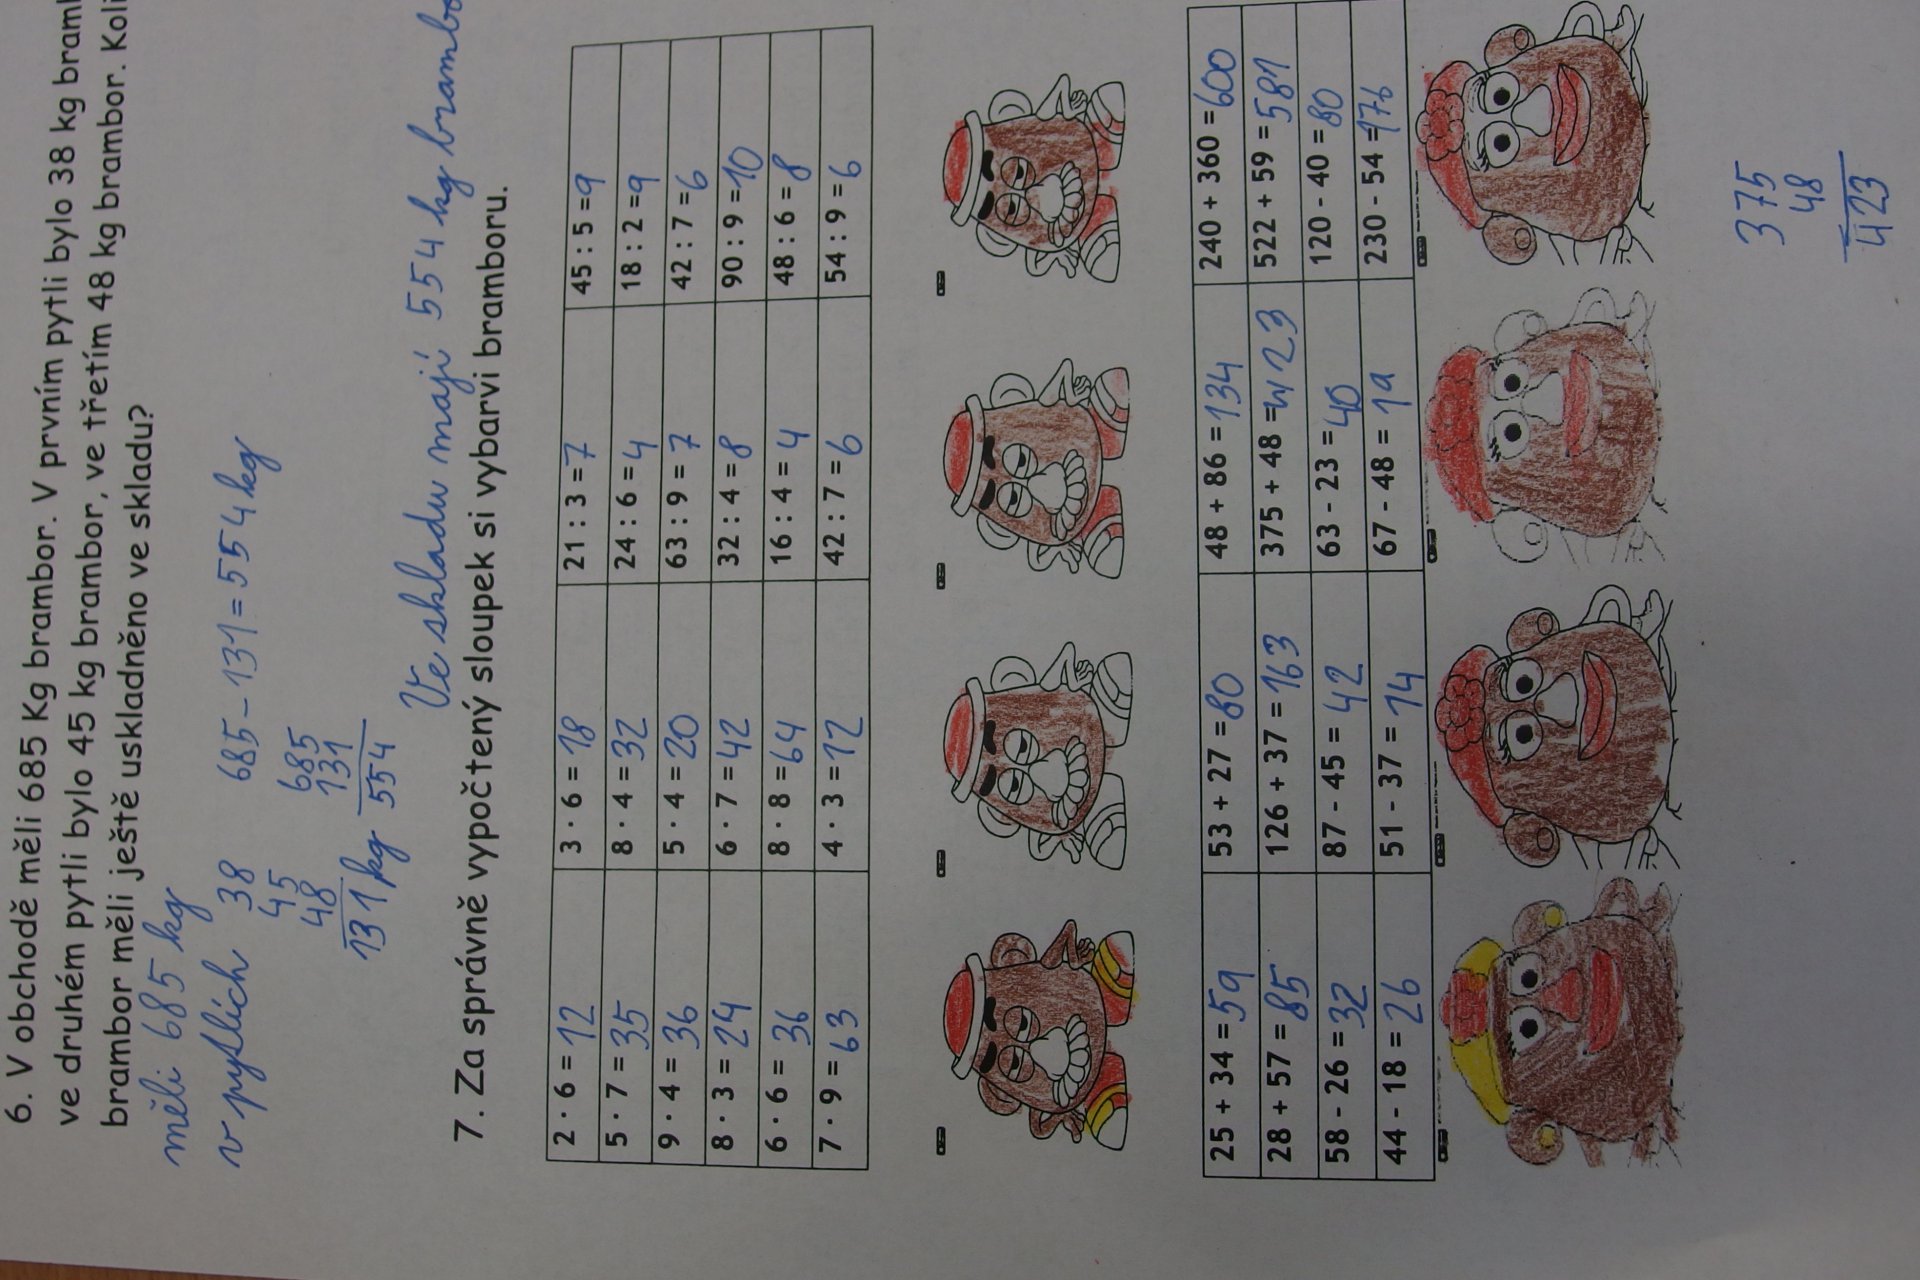 6. V obchodě měli 685 Kg brambor. V prvním pytli bylo 38 kg
ve druhém pytli bylo 45 kg brambor, ve třetím 48 kg brambor.
brambor měli ještě uskladněno ve skladu?
měli 685 kg
v pytlích 38 685 - 131 = 554 kg
45 685
48 131
131 kg 554
Ve skladu mají 554 kg
7. Za správně vypočtený sloupek si vybarvi bramboru.
2 · 6 = 12 3 · 6 = 18 21 : 3 = 7 45 : 5 = 9
5 · 7 = 35 8 · 4 = 32 24 : 6 = 4 18 : 2 = 9
9 · 4 = 36 5 · 4 = 20 63 : 9 = 7 42 : 7 = 6
8 · 3 = 24 6 · 7 = 42 32 : 4 = 8 90 : 9 = 10
6 · 6 = 36 8 · 8 = 64 16 : 4 = 4 48 : 6 = 8
7 · 9 = 63 4 · 3 = 12 42 : 7 = 6 54 : 9 = 6
25 + 34 = 59 53 + 27 = 80 48 + 86 = 134 240 + 360 = 600
28 + 57 = 85 126 + 37 = 163 375 + 48 = 423 522 + 59 = 581
58 - 26 = 32 87 - 45 = 42 63 - 23 = 40 120 - 40 = 80
44 - 18 = 26 51 - 37 = 14 67 - 48 = 19 230 - 54 = 176
375
48
423